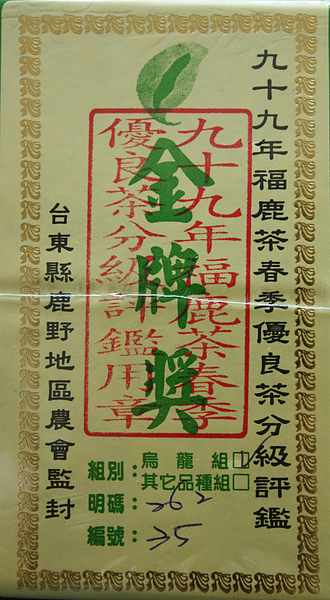 九十九年福鹿茶春季優良茶分級評鑑
九十九年福鹿茶春季
優良茶分級評鑑用章
金牌獎
台東縣鹿野地區農會監封
組別：烏龍組☑
其它品種組□
明碼：262
編號：35